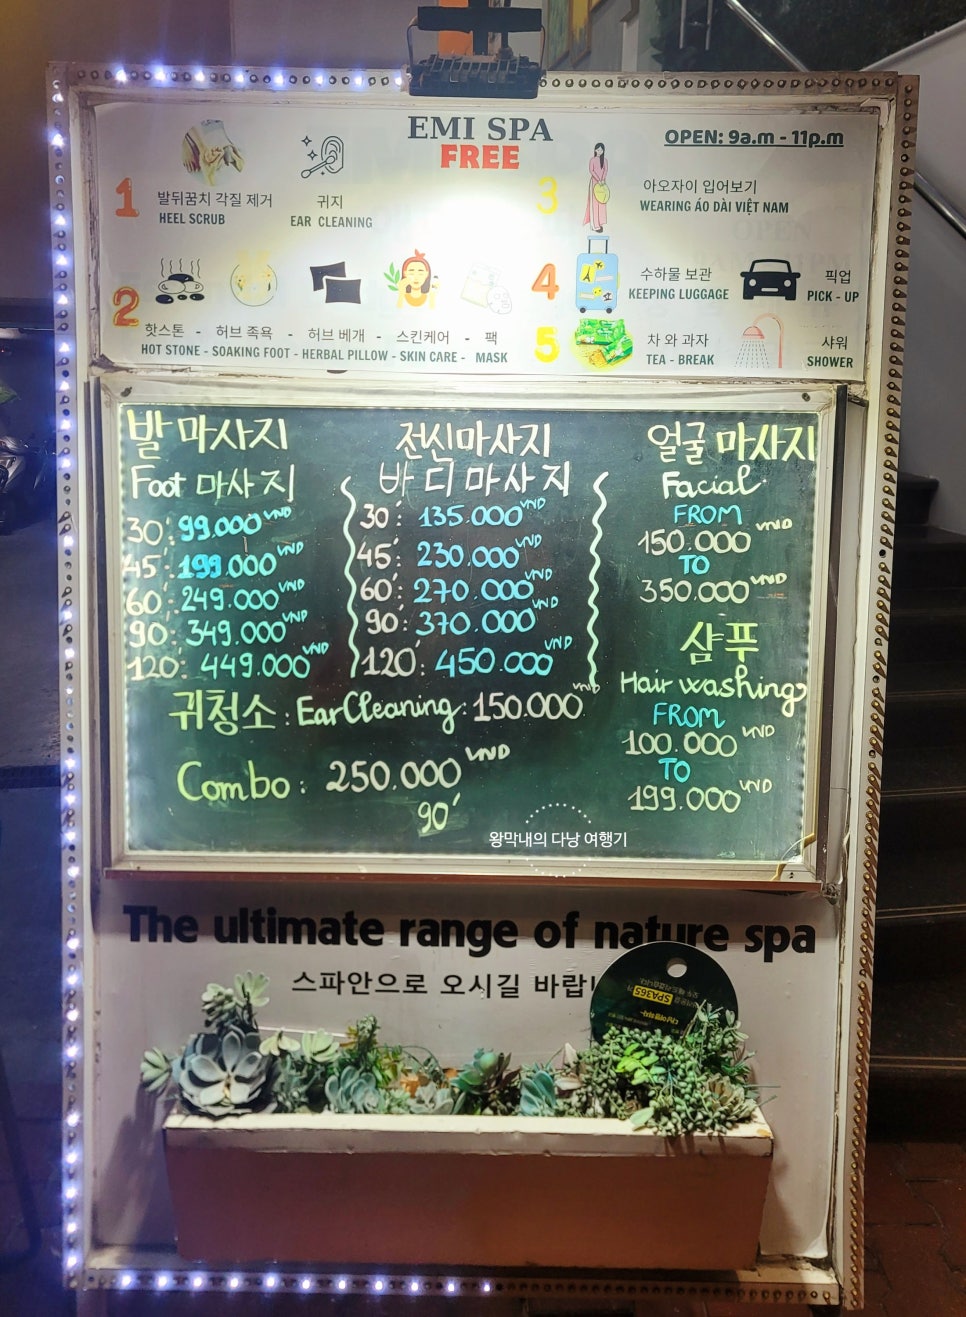 EMI SPA
FREE
OPEN: 9a.m - 11p.m
1
발뒤꿈치 각질 제거
HEEL SCRUB
귀지
EAR CLEANING
3
아오자이 입어보기
WEARING ÁO DÀI VIỆT NAM
2
핫스톤 - 허브 족욕 - 허브 베개 - 스킨케어 - 팩
HOT STONE - SOAKING FOOT - HERBAL PILLOW - SKIN CARE - MASK
4
수하물 보관
KEEPING LUGGAGE
픽업
PICK - UP
5
차 와 과자
TEA - BREAK
샤워
SHOWER
발 마사지
Foot 마사지
30': 99.000 VND
45': 199.000 VND
60': 249.000 VND
90': 349.000 VND
120': 449.000 VND
전신마사지
바디마사지
30': 135.000 VND
45': 230.000 VND
60': 270.000 VND
90': 370.000 VND
120': 450.000 VND
얼굴 마사지
Facial
FROM
150.000 VND
TO
350.000 VND
샴푸
Hair washing
FROM
100.000 VND
TO
199.000 VND
귀청소 : Ear Cleaning : 150.000 VND
Combo : 250.000 VND
90'
왕막내의 다낭 여행기
The ultimate range of nature spa
스파안으로 오시길 바랍니
SPA365